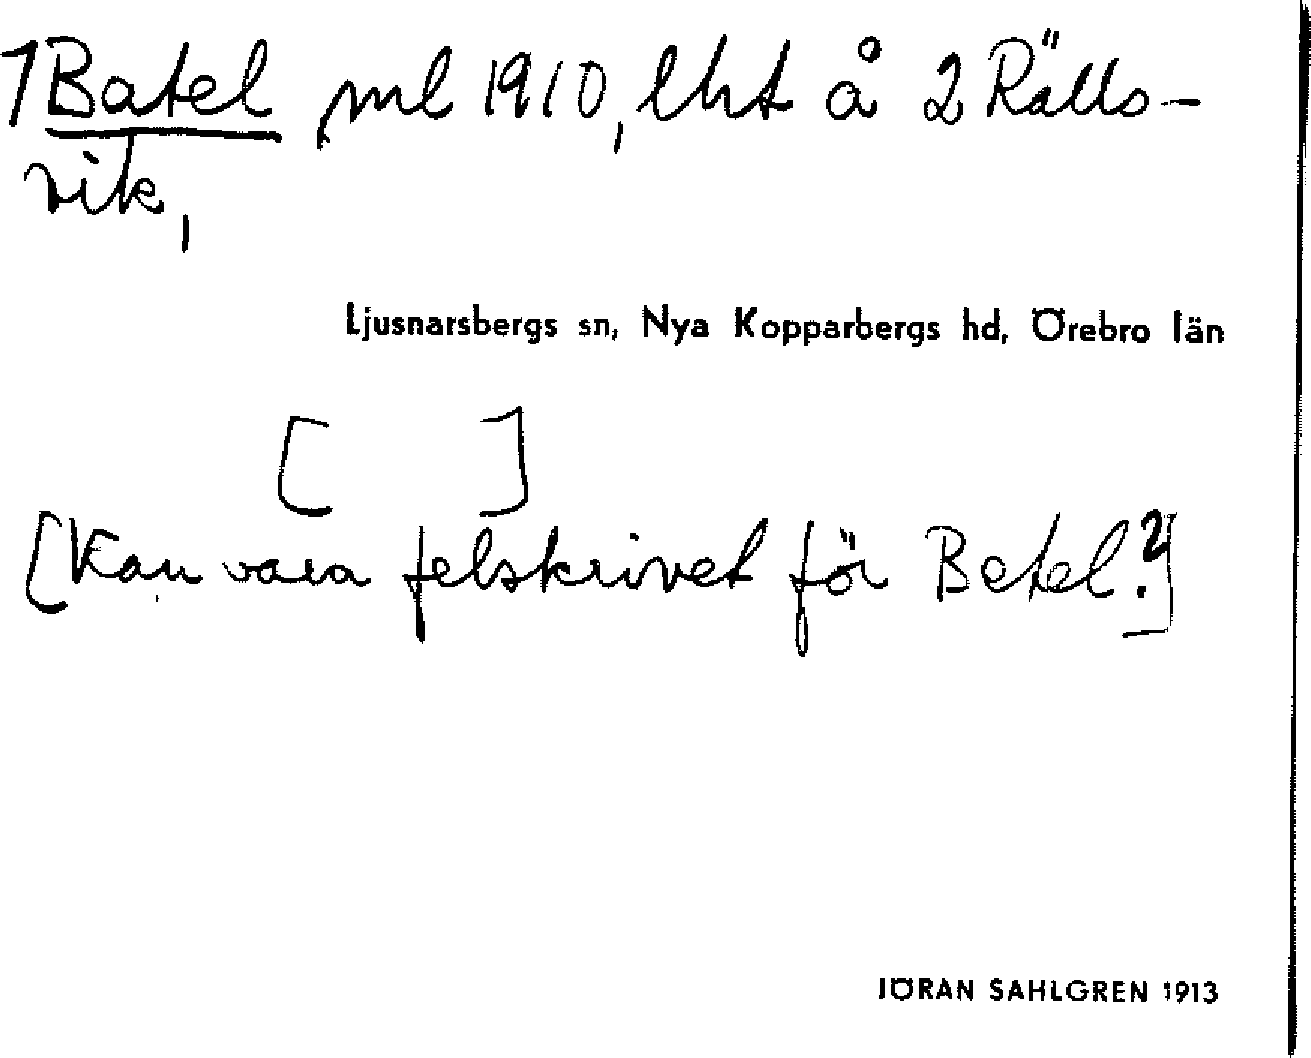 1 Batel ml 1910, lht å 2 Rälls-
vik,
Ljusnarsbergs sn, Nya Kopparbergs hd, Örebro län
[ ]
[Kan vara felskrivet för Betel?]
JÖRAN SAHLGREN 1913